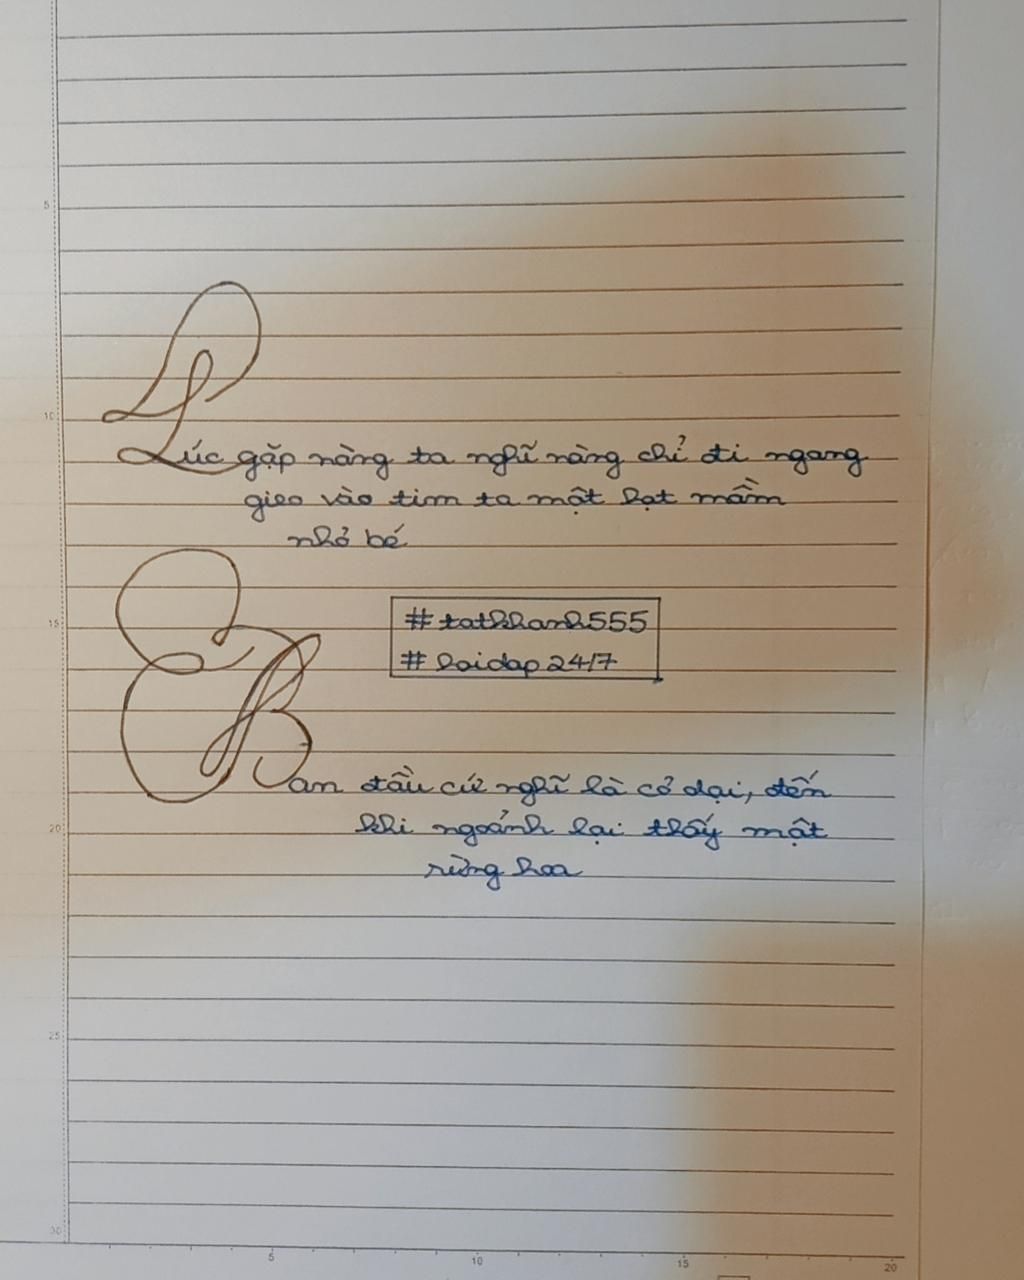 Lúc gặp nàng ta nghĩ nàng chỉ đi ngang
gieo vào tim ta một hạt mầm
nhỏ bé
#tatkhanh555
#hoidap24/7
Ban đầu cứ nghĩ là cỏ dại, đến
khi ngoảnh lại thấy một
rừng hoa
5
10
15
20
25
30
5
10
15
20